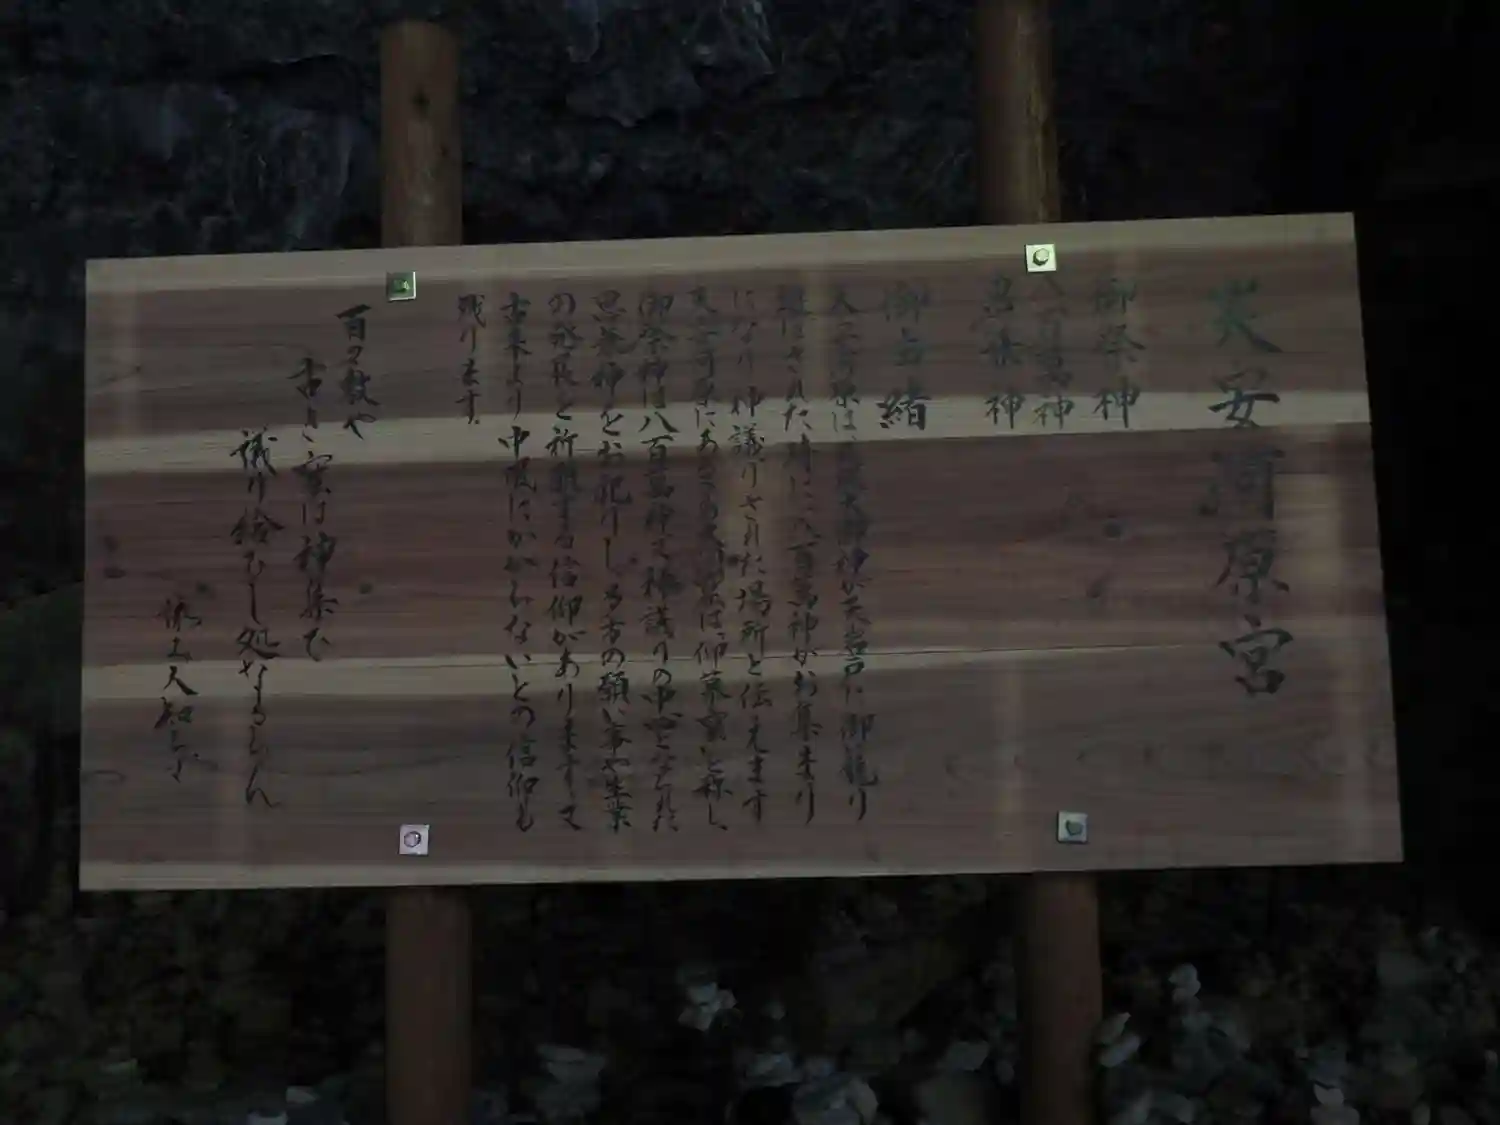 天安河原宮
御祭神
八百萬神
思兼神
御由緒
天安河原は、天照大御神が天岩戸に御籠り
遊ばされた時に八百萬神がお集まり
になり神議りされた場所と伝えます
天安河原にあるこの大洞窟は、仰慕窟と称し、
御祭神は八百萬神と神議りの中心となられた
思兼神をお祀りし、る方の願い事や生業
の発展と祈願する信仰があります。又
古来より中風にかからないとの信仰も
残ります。
百の数や
古き窟は神集ひ
議り給ひし処なるらん
人知らず